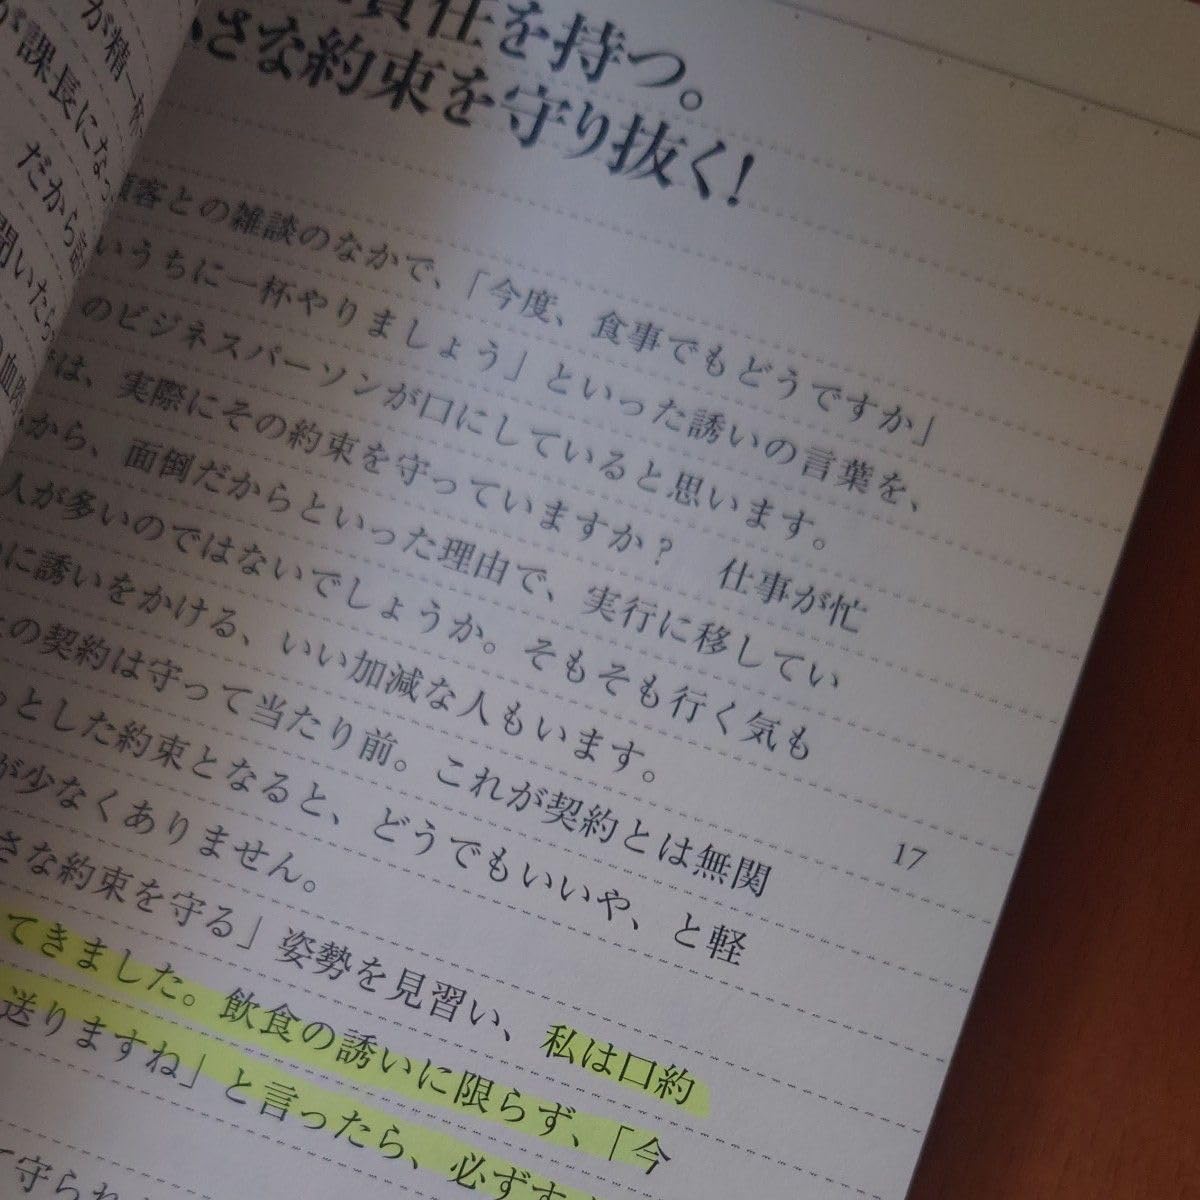 が精一杯
が課長になっ
だから
聞いたら
責任を持つ。
さな約束を守り抜く！
顧客との雑談のなかで、「今度、食事でもどうですか」
いうちに一杯やりましょう」といった誘いの言葉を、
のビジネスパーソンが口にしていると思います。
は、実際にその約束を守っていますか？　仕事が忙
から、面倒だからといった理由で、実行に移してい
人が多いのではないでしょうか。そもそも行く気も
に誘いをかける、いい加減な人もいます。
の契約は守って当たり前。これが契約とは無関
っとした約束となると、どうでもいいや、と軽
が少なくありません。
さな約束を守る」姿勢を見習い、私は口約
てきました。飲食の誘いに限らず、「今
送りますね」と言ったら、必ずす
守られ
17